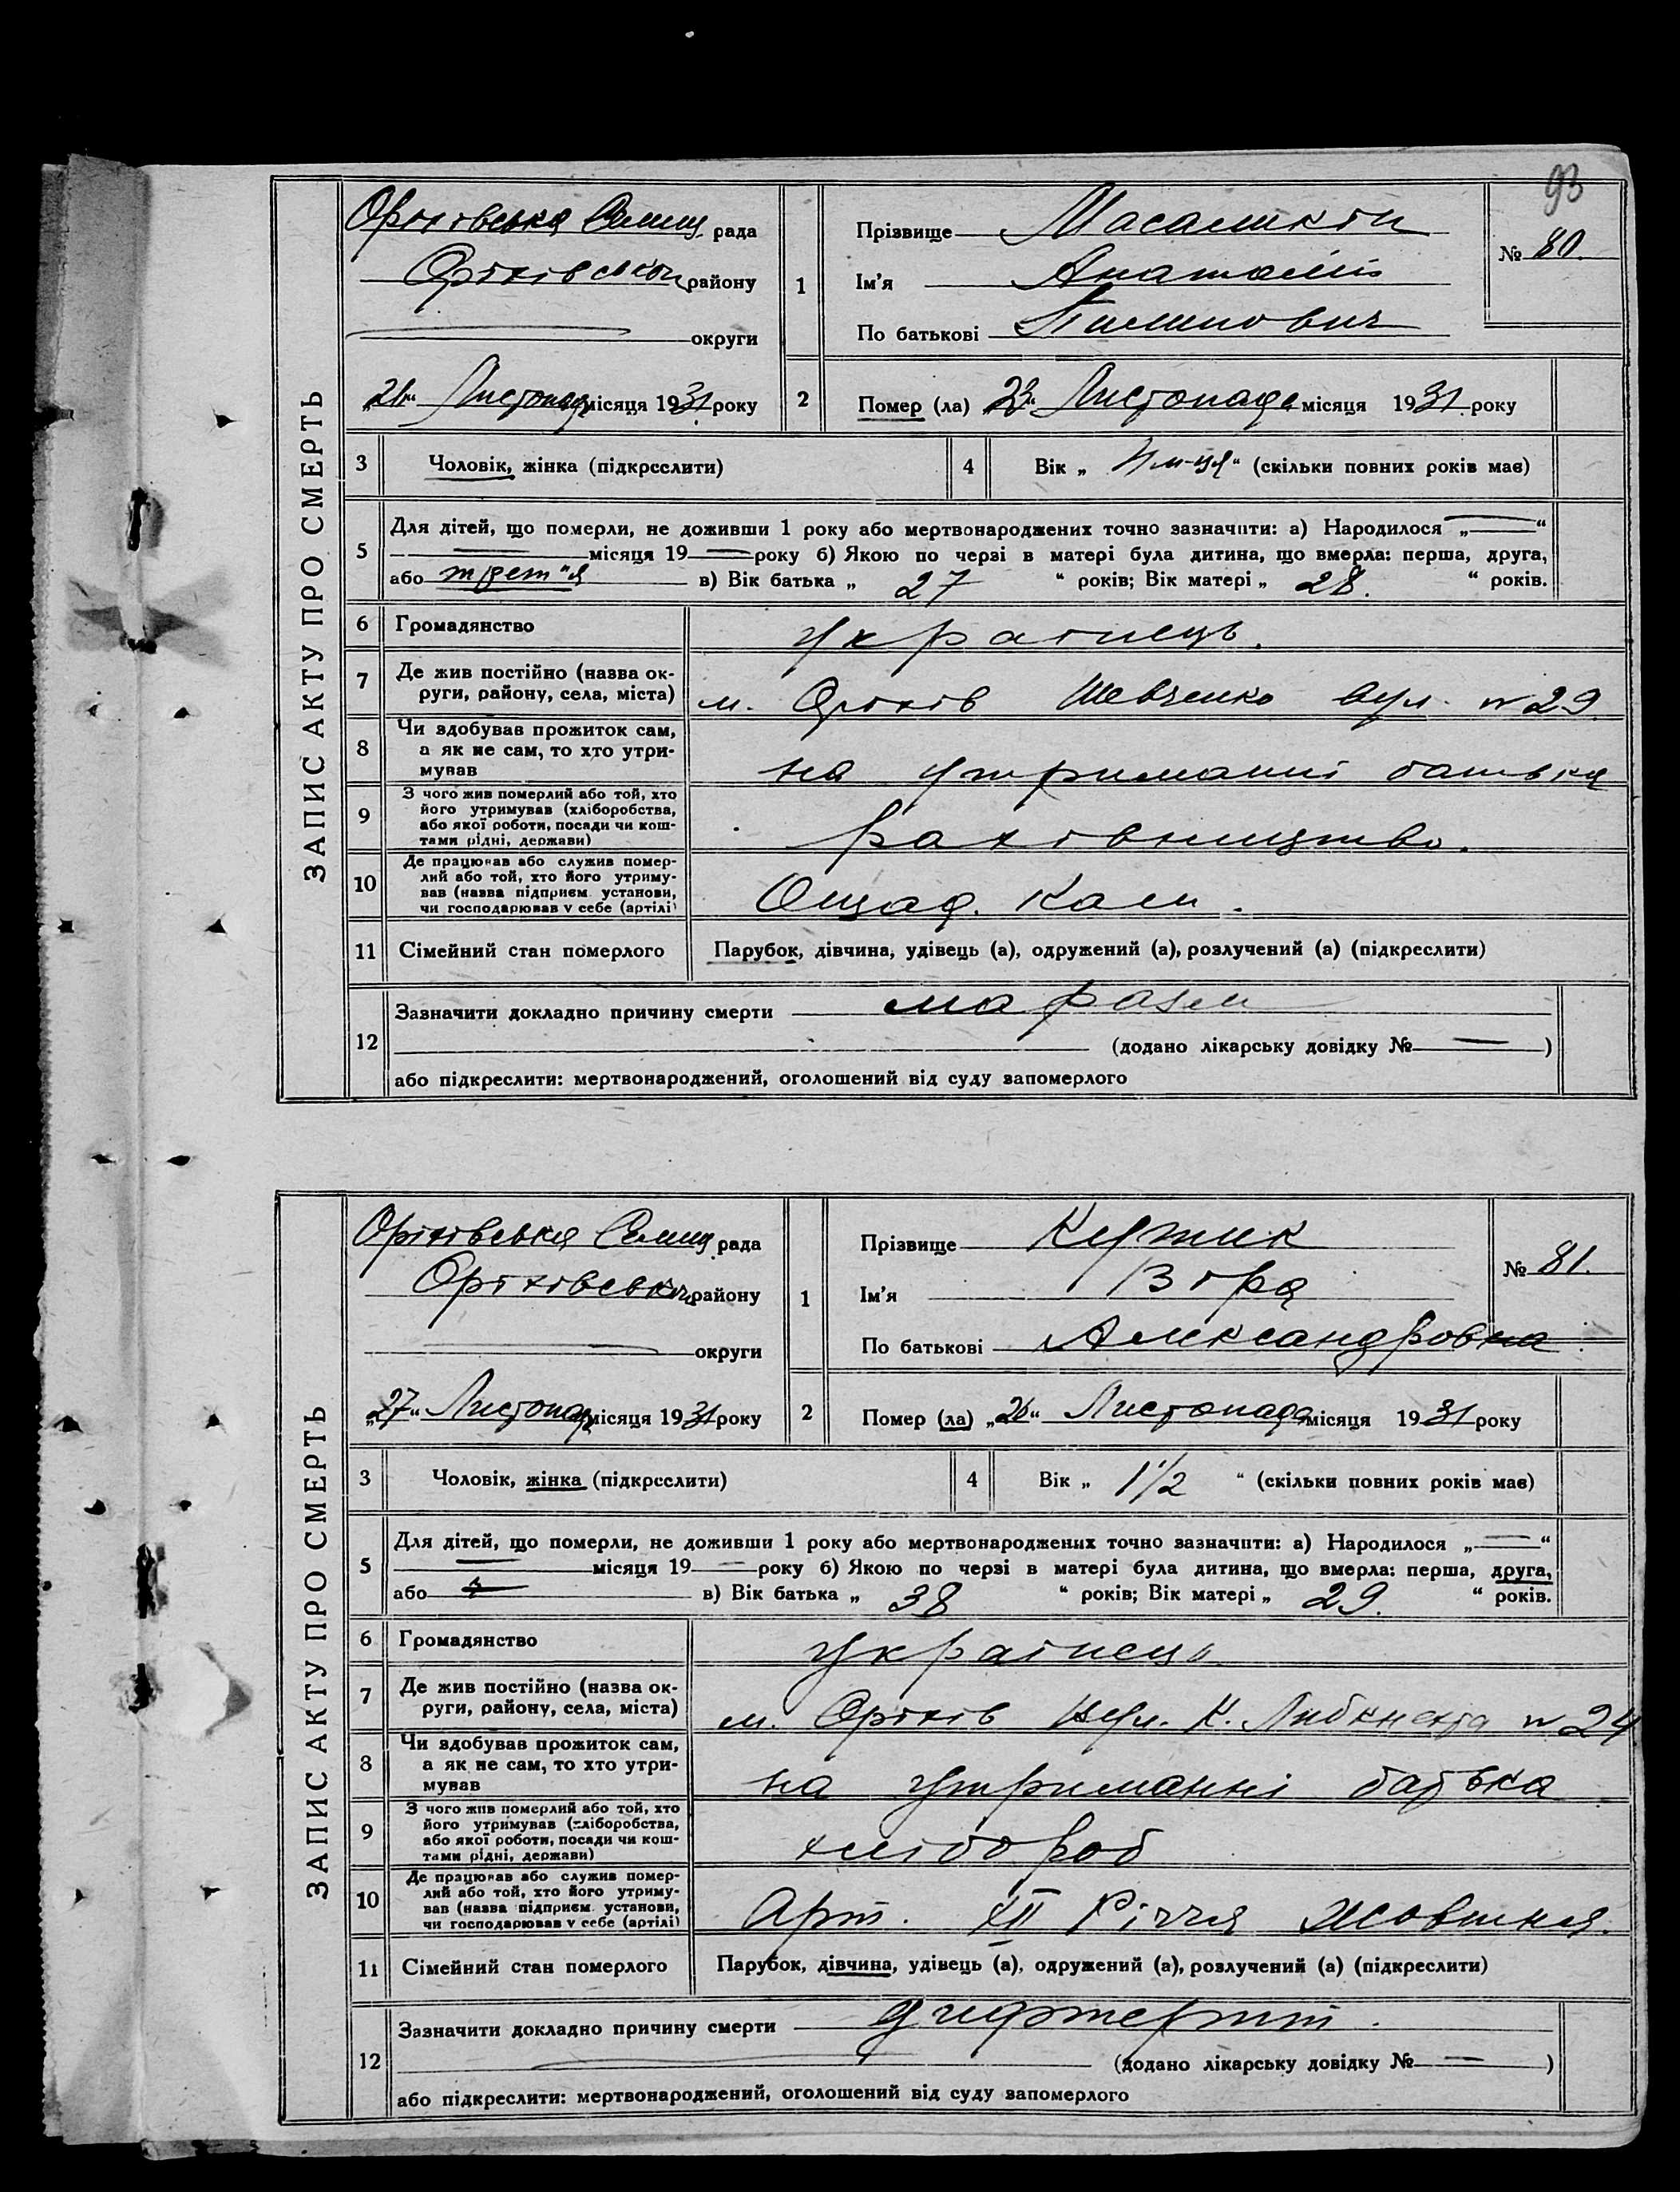 93
ЗАПИС АКТУ ПРО СМЕРТЬ
Оріхівська Селищ. рада
Оріхівськ району
округи
„26“ Листопад місяця 1931 року
1
Прізвище Масаликін
Ім'я Анатолій
По батькові
№ 80.
2 Помер (ла) „23“ Листопада місяця 1931 року
3 Чоловік, жінка (підкреслити)
4 Вік „ 4 м-ця “ (скільки повних років має)
5 Для дітей, що померли, не доживши 1 року або мертвонароджених точно зазначити: а) Народилося „—“
— місяця 19 — року б) Якою по черзі в матері була дитина, що вмерла: перша, друга,
або трет"я в) Вік батька „ 27 “ років; Вік матері „ 28. “ років.
6 Громадянство українець.
7 Де жив постійно (назва ок-
руги, району, села, міста) м. Оріхів Шевченко вул. № 29
8 Чи здобував прожиток сам,
а як не сам, то хто утри-
мував на утриманні батька
9 З чого жив померлий або той, хто
його утримував (хліборобства,
або якої роботи, посади чи кош-
тами рідні, держави) рахівництво.
10 Де працював або служив помер-
лий або той, хто його утриму-
вав (назва підприєм. установи,
чи господарював у себе (артілі) Ощад. Каси.
11 Сімейний стан померлого Парубок, дівчина, удівець (а), одружений (а), розлучений (а) (підкреслити)
12 Зазначити докладно причину смерти маразм
(додано лікарську довідку № — )
або підкреслити: мертвонароджений, оголошений від суду запомерлого
ЗАПИС АКТУ ПРО СМЕРТЬ
Оріхівська Селищ рада
Оріхівськ району
округи
„27“ Листопад місяця 1931 року
1
Прізвище Кужик
Ім'я Віра
По батькові Александровна
№ 81.
2 Помер (ла) „26“ Листопада місяця 1931 року
3 Чоловік, жінка (підкреслити)
4 Вік „ 1 1/2 “ (скільки повних років має)
5 Для дітей, що померли, не доживши 1 року або мертвонароджених точно зазначити: а) Народилося „—“
— місяця 19 — року б) Якою по черзі в матері була дитина, що вмерла: перша, друга,
або — в) Вік батька „ 38 “ років; Вік матері „ 29. “ років.
6 Громадянство українець
7 Де жив постійно (назва ок-
руги, району, села, міста) м. Оріхів вул. К. Либкнехта № 24
8 Чи здобував прожиток сам,
а як не сам, то хто утри-
мував на утриманні батька
9 З чого жив померлий або той, хто
його утримував (хліборобства,
або якої роботи, посади чи кош-
тами рідні, держави) хлібороб
10 Де працював або служив помер-
лий або той, хто його утриму-
вав (назва підприєм. установи,
чи господарював у себе (артілі) Арт. XII Річчя Жовтня.
11 Сімейний стан померлого Парубок, дівчина, удівець (а), одружений (а), розлучений (а) (підкреслити)
12 Зазначити докладно причину смерти дифтерит.
(додано лікарську довідку № — )
або підкреслити: мертвонароджений, оголошений від суду запомерлого